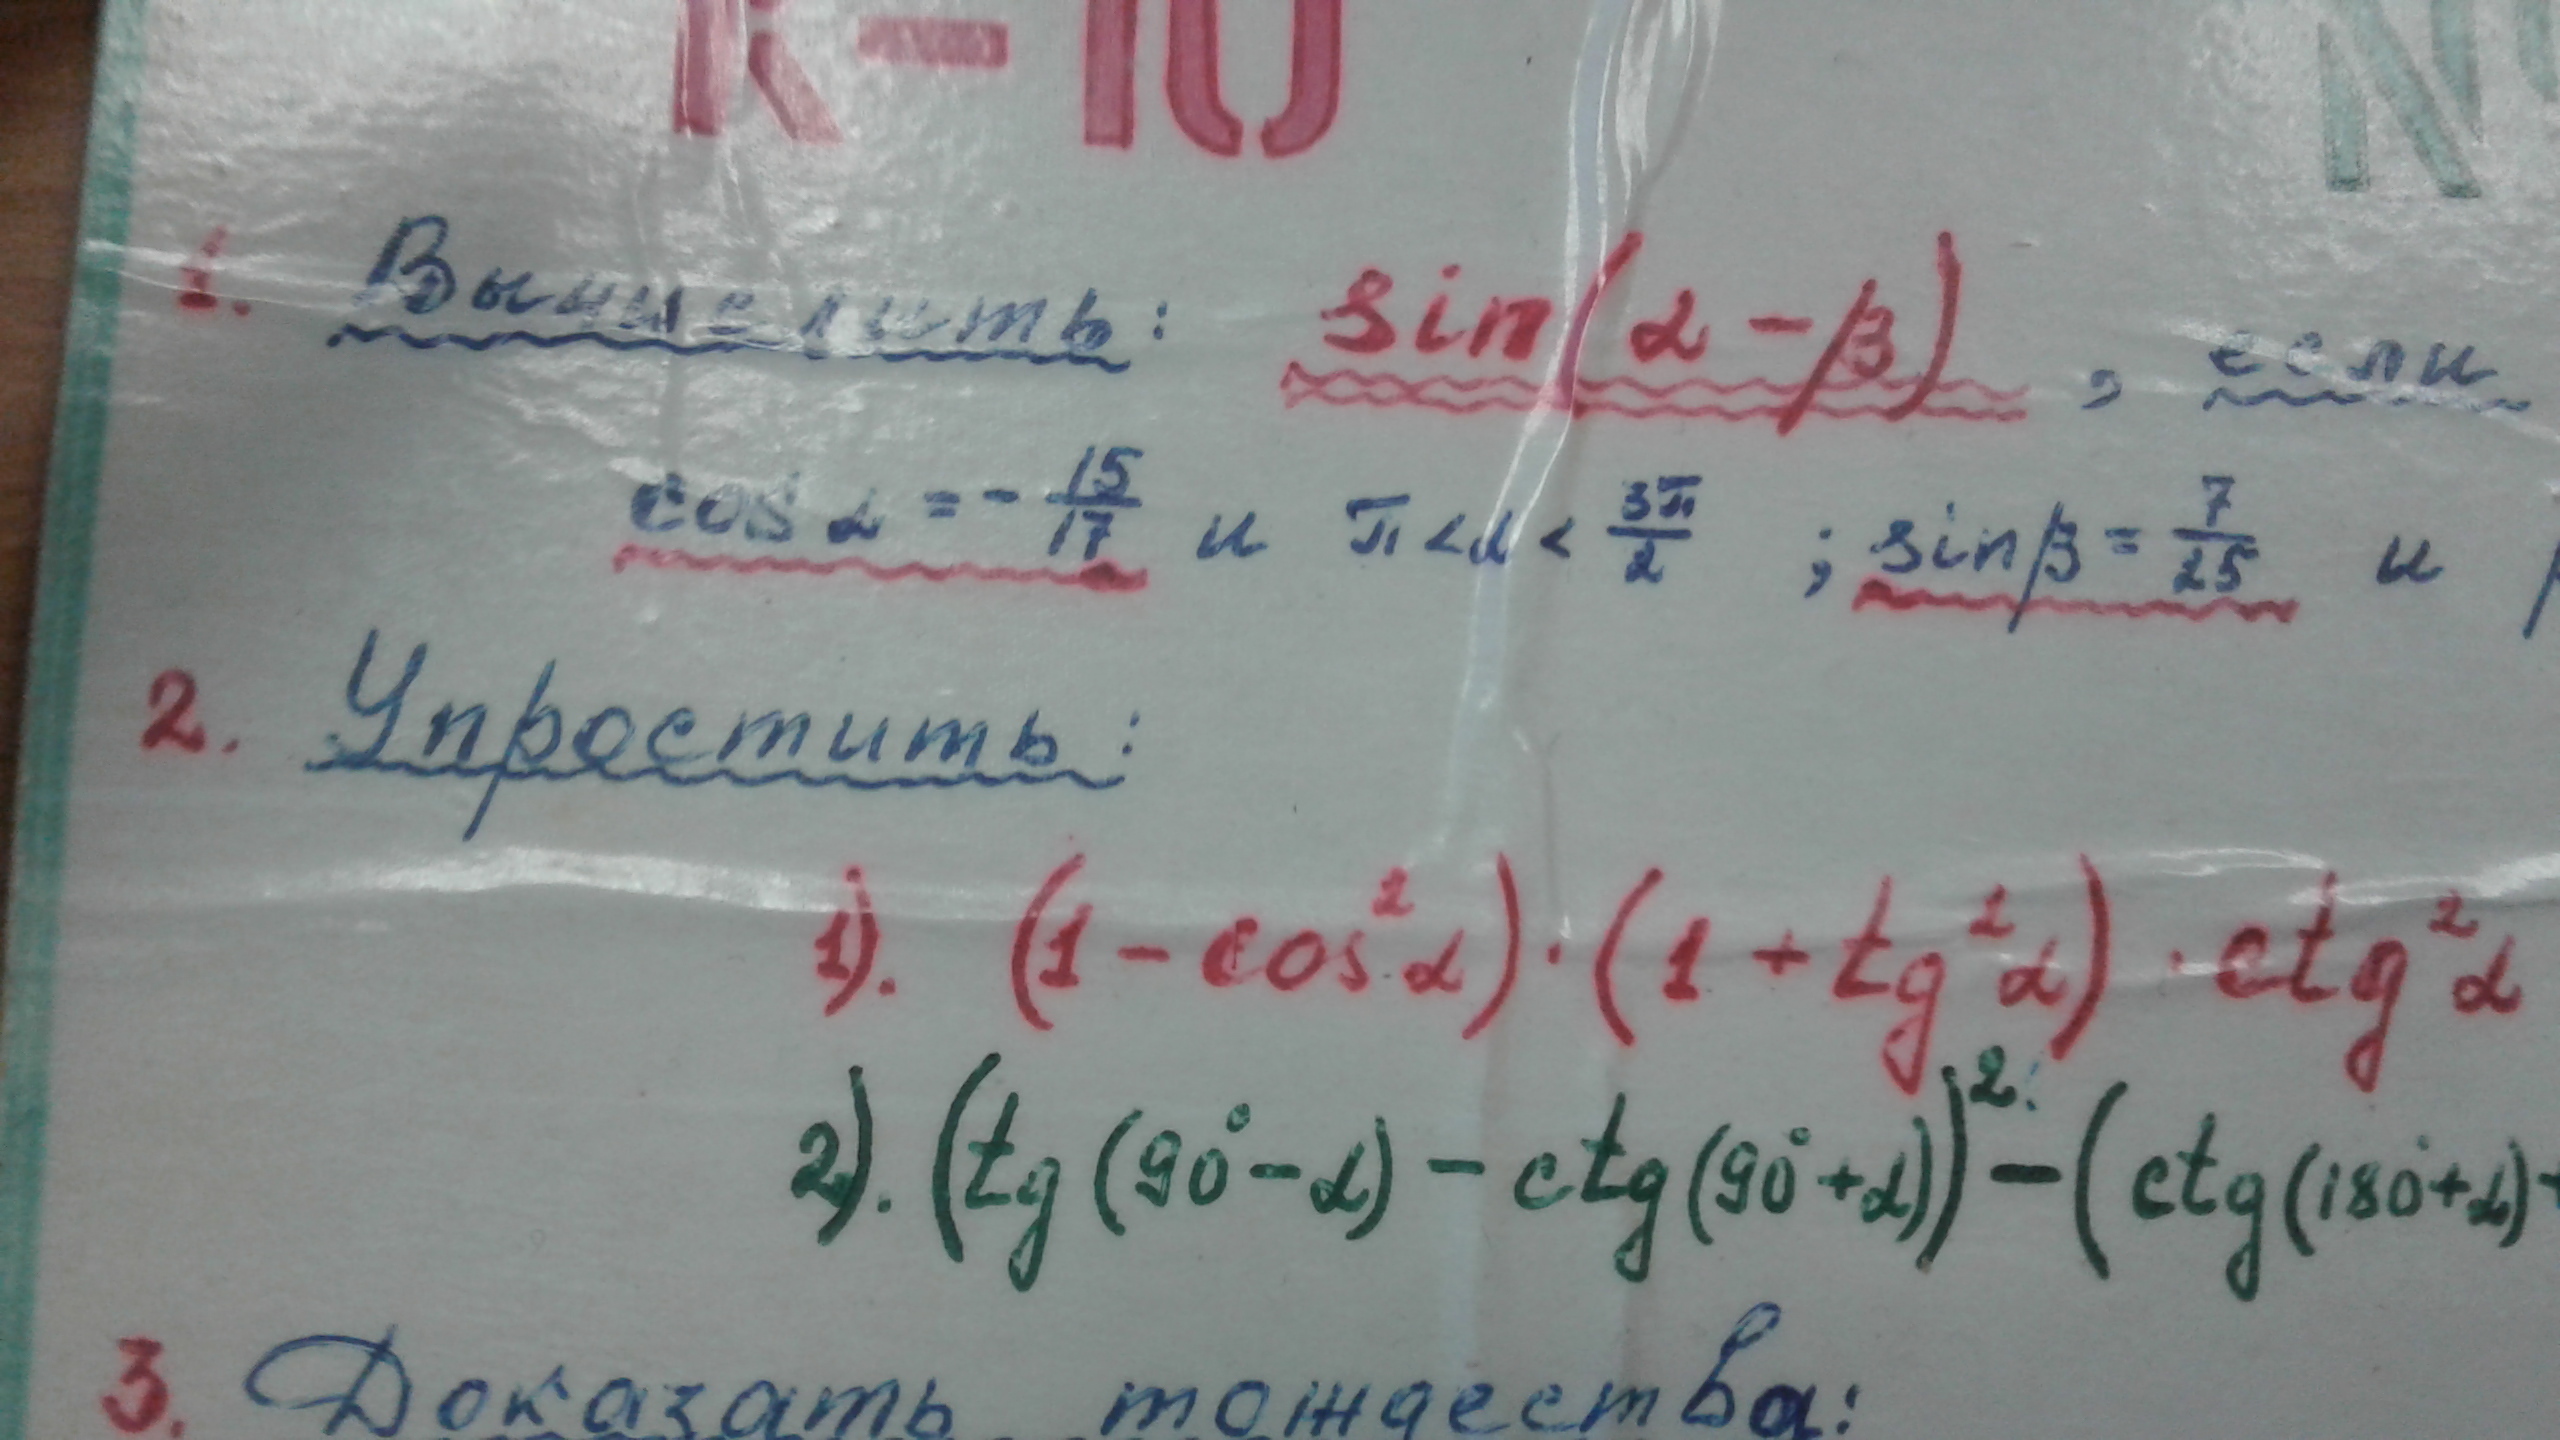 К-10 N
1. Вычислить: sin(α-β), если
cos α = - 15/17 и π < α < 3π/2 ; sin β = 7/25 и
2. Упростить:
1). (1 - cos²α) · (1 + tg²α) · ctg²α
2). (tg(90° - α) - ctg(90° + α))² - (ctg(180° + α) +
3. Доказать тождества: